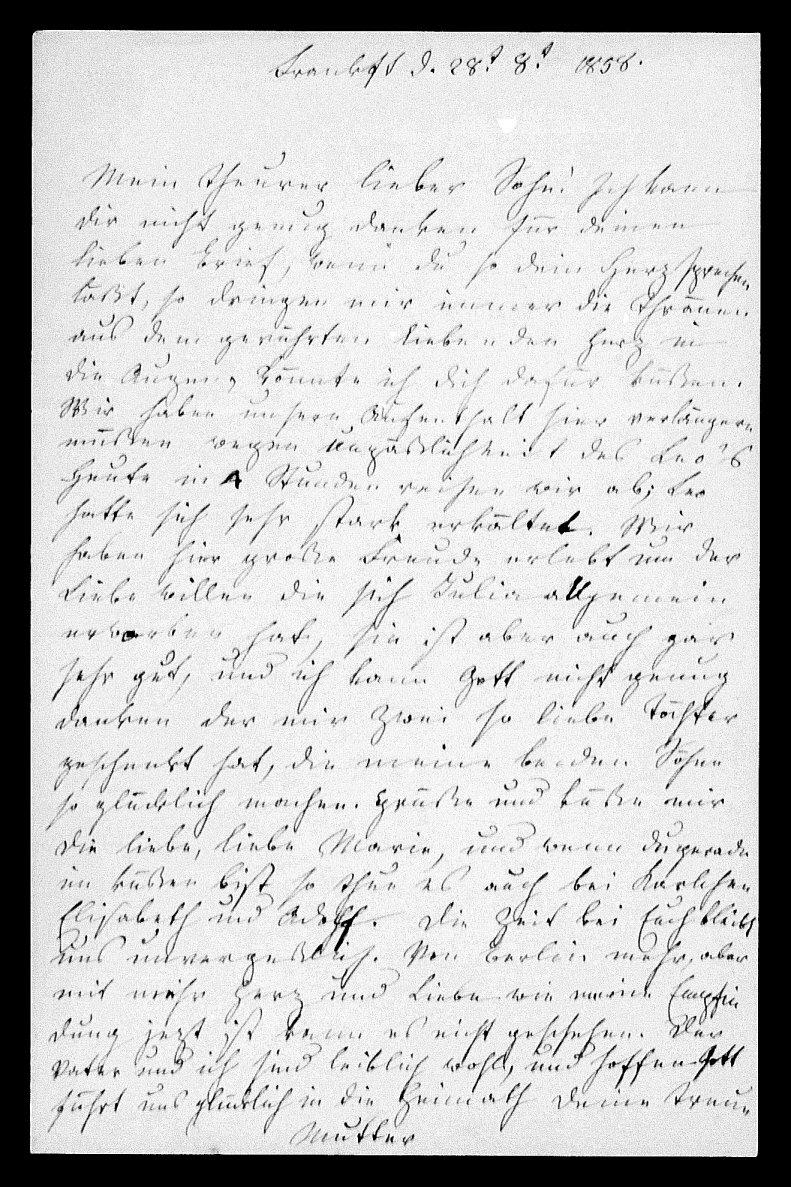 Frankft d. 28t 8t 1858.
Mein theurer lieber Sohn! Ich kann
dir nicht genug danken für deinen
lieben Brief, wenn du so dein Herz sprechen
laßt, so dringen mir immer die Thränen
aus dem gerührten liebenden Herz in
die Augen, könnte ich dich dafür küssen.
Wir haben unsern Aufenthalt hier verlängern
müssen wegen Unpässlichkeit des Leo's
Heute in 4 Stunden reisen wir ab; Leo
hatte sich sehr stark erkältet. Wir
haben hier große Freude erlebt um der
Liebe willen die sich Julia allgemein
erworben hat, sie ist aber auch gar
sehr gut, und ich kann Gott nicht genug
danken der mir zwei so liebe Töchter
geschenkt hat, die meine beiden Söhne
so glücklich machen. Grüße und küße mir
die liebe, liebe Marie, und wenn du gerade
im küssen bist so thue es auch bei Karlchen
Elisabeth und Adolf. Die Zeit bei Euch bleibt
uns unvergesslich. Von Berlin mehr, aber
mit mehr Herz und Liebe wie meine Empfin
dung jezt ist kann es nicht geschehen. Der
Vater und ich sind leiblich wohl, und hoffen Gott
führt uns glücklich in die Heimath deine treue
Mutter